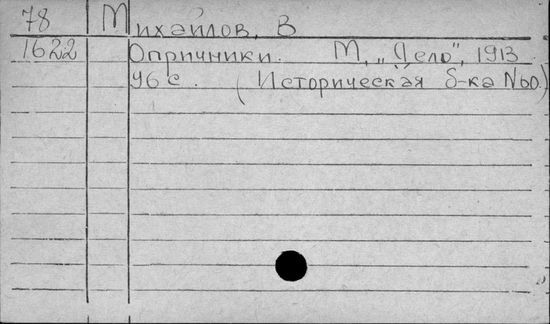 78 Михайлов, В
1622 Опричники. М, „Дело", 1913
96 с. (Историческая б-ка №60.)